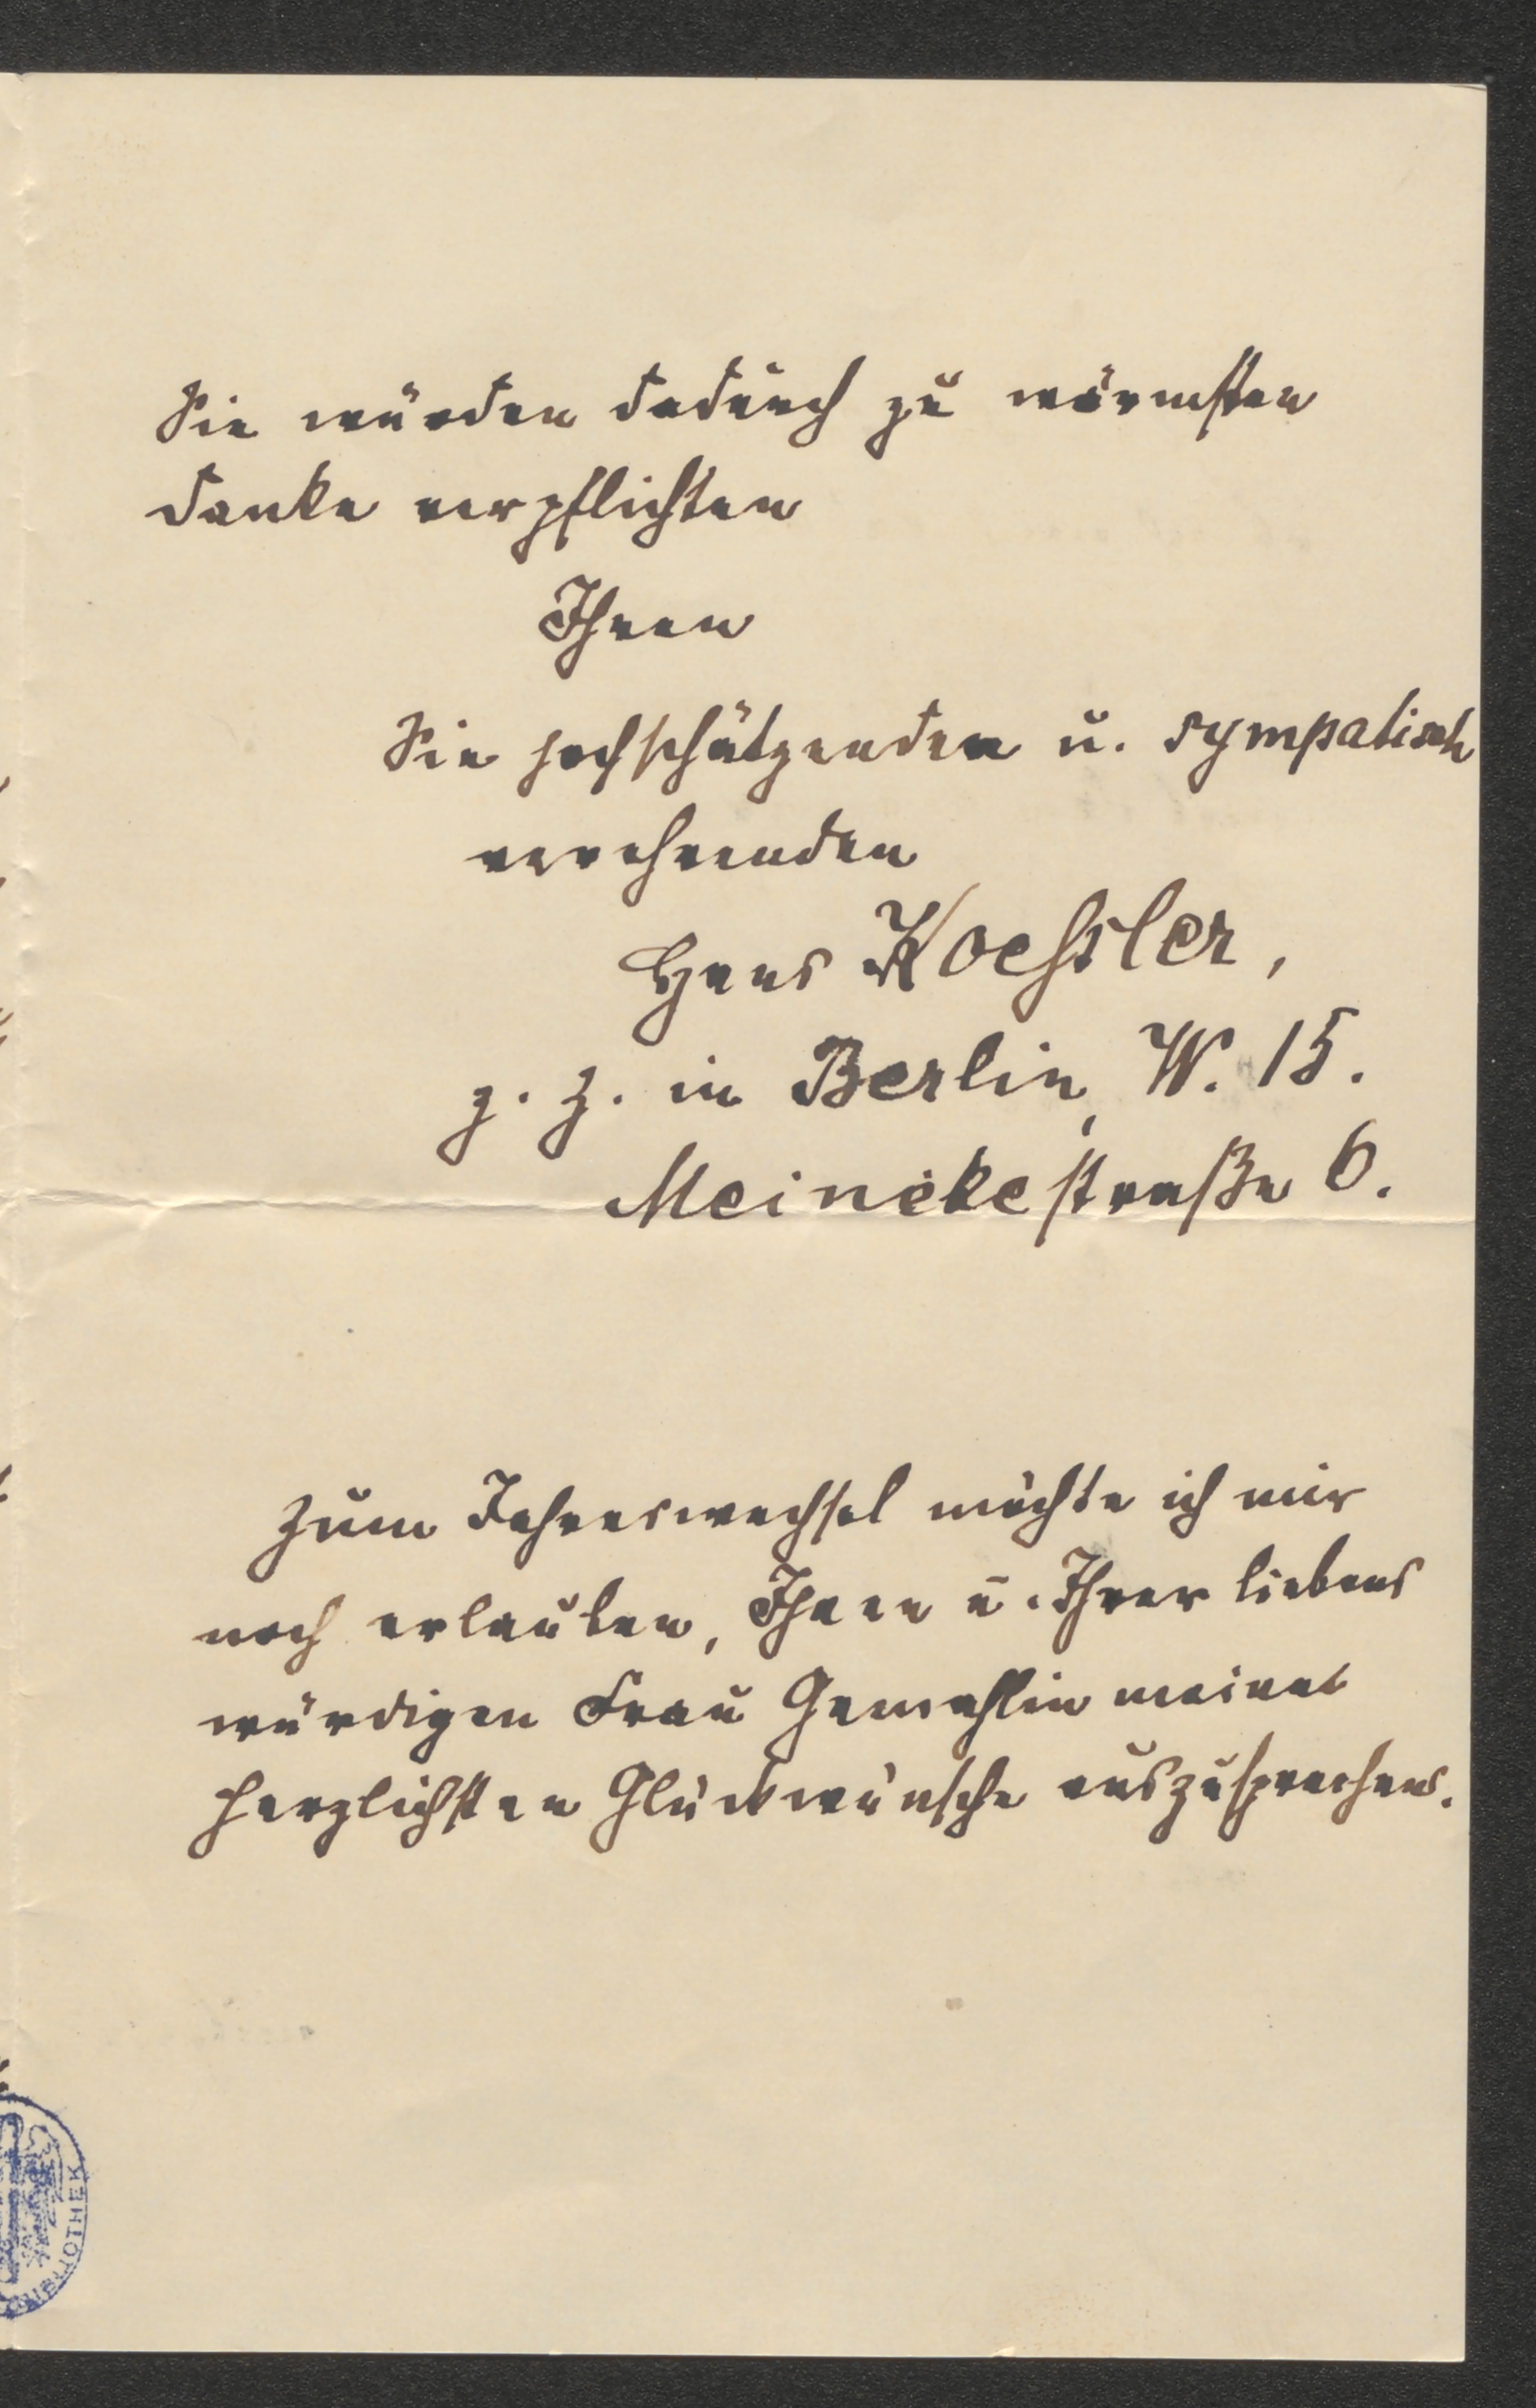 Sie würden dadurch zu wärmsten
Danke verpflichten
Ihren
Sie hochschätzenden u. sympatisch
verehrenden
Hans Koessler,
z. Z. in Berlin, W. 15.
Meinekestraße 6.
Zum Jahreswechsel möchte ich mir
noch erlauben, Ihnen u. Ihrer liebens
würdigen Frau Gemahlin meine
herzlichsten Glückwünsche auszusprechen.
BIBLIOTHEK